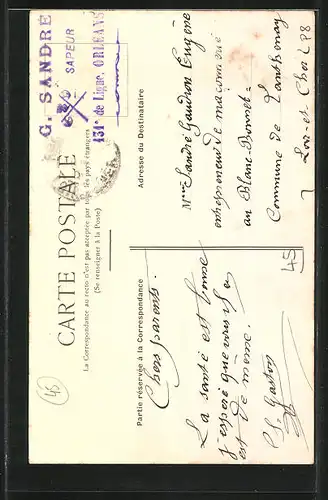 G. SANDRÉ
SAPEUR
131e de Ligne. ORLÉANS
CARTE POSTALE
La Correspondance au recto n'est pas acceptée par tous les pays étrangers
(Se renseigner à la Poste)
Partie réservée à la Correspondance
Adresse du Destinataire
Chers parents.
La santé est bonne
j'espère que vous il en
est de même.
Gaston
Mme Sandré Gaudron Eugène
entrepreneur de maçonnerie
au Blanc-Bonnet-
Commune de Lanthenay
Loir-et-Cher L98
45
45